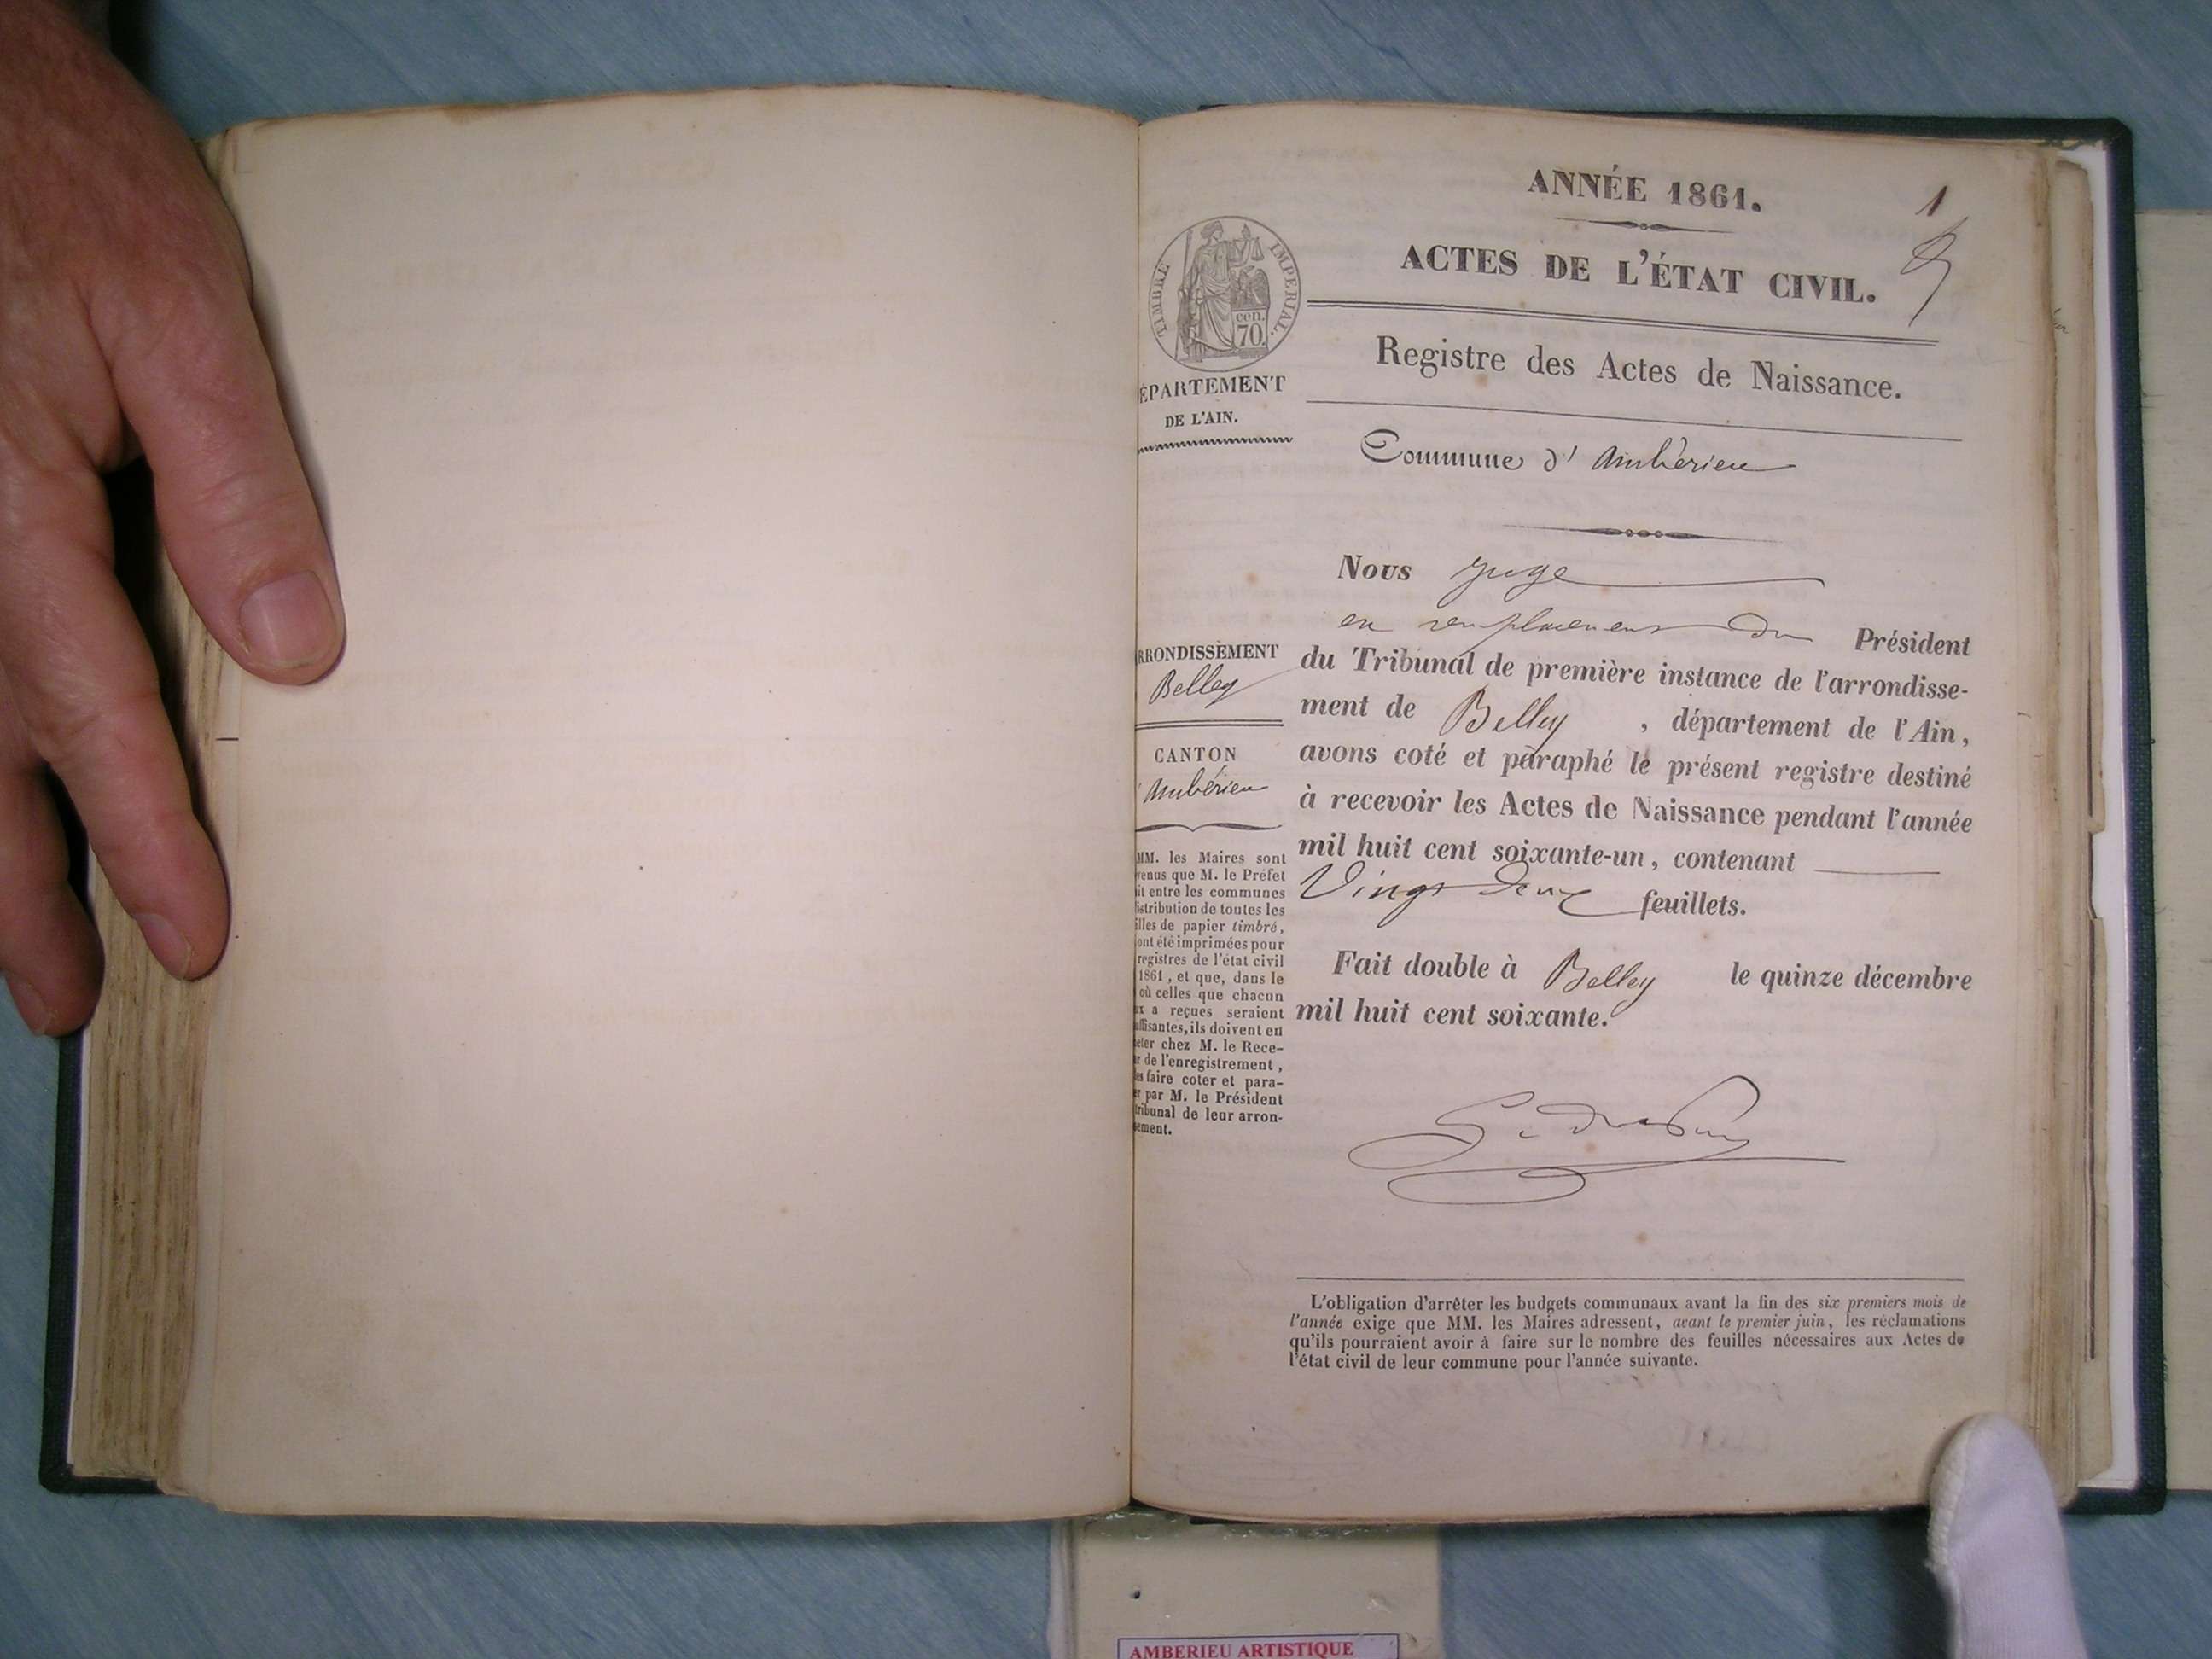 ANNÉE 1861.
1
ACTES DE L'ÉTAT CIVIL.
TIMBRE IMPERIAL.
cen.
70.
Registre des Actes de Naissance.
ÉPARTEMENT
DE L'AIN.
Commune d' Ambérieu
Nous juge
en remplacement du Président
du Tribunal de première instance de l'arrondisse-
ment de Belley , département de l'Ain,
avons coté et paraphé le présent registre destiné
à recevoir les Actes de Naissance pendant l'année
mil huit cent soixante-un, contenant
Vingt deux feuillets.
Fait double à Belley le quinze décembre
mil huit cent soixante.
RRONDISSEMENT
Belley
CANTON
Ambérieu
MM. les Maires sont
venus que M. le Préfet
it entre les communes
istribution de toutes les
illes de papier timbré,
ont été imprimées pour
registres de l'état civil
1861, et que, dans le
où celles que chacun
ux a reçues seraient
uffisantes, ils doivent en
eter chez M. le Rece-
r de l'enregistrement,
es faire coter et para-
er par M. le Président
tribunal de leur arron-
sement.
L'obligation d'arrêter les budgets communaux avant la fin des six premiers mois de
l'année exige que MM. les Maires adressent, avant le premier juin, les réclamations
qu'ils pourraient avoir à faire sur le nombre des feuilles nécessaires aux Actes de
l'état civil de leur commune pour l'année suivante.
AMBERIEU ARTISTIQUE